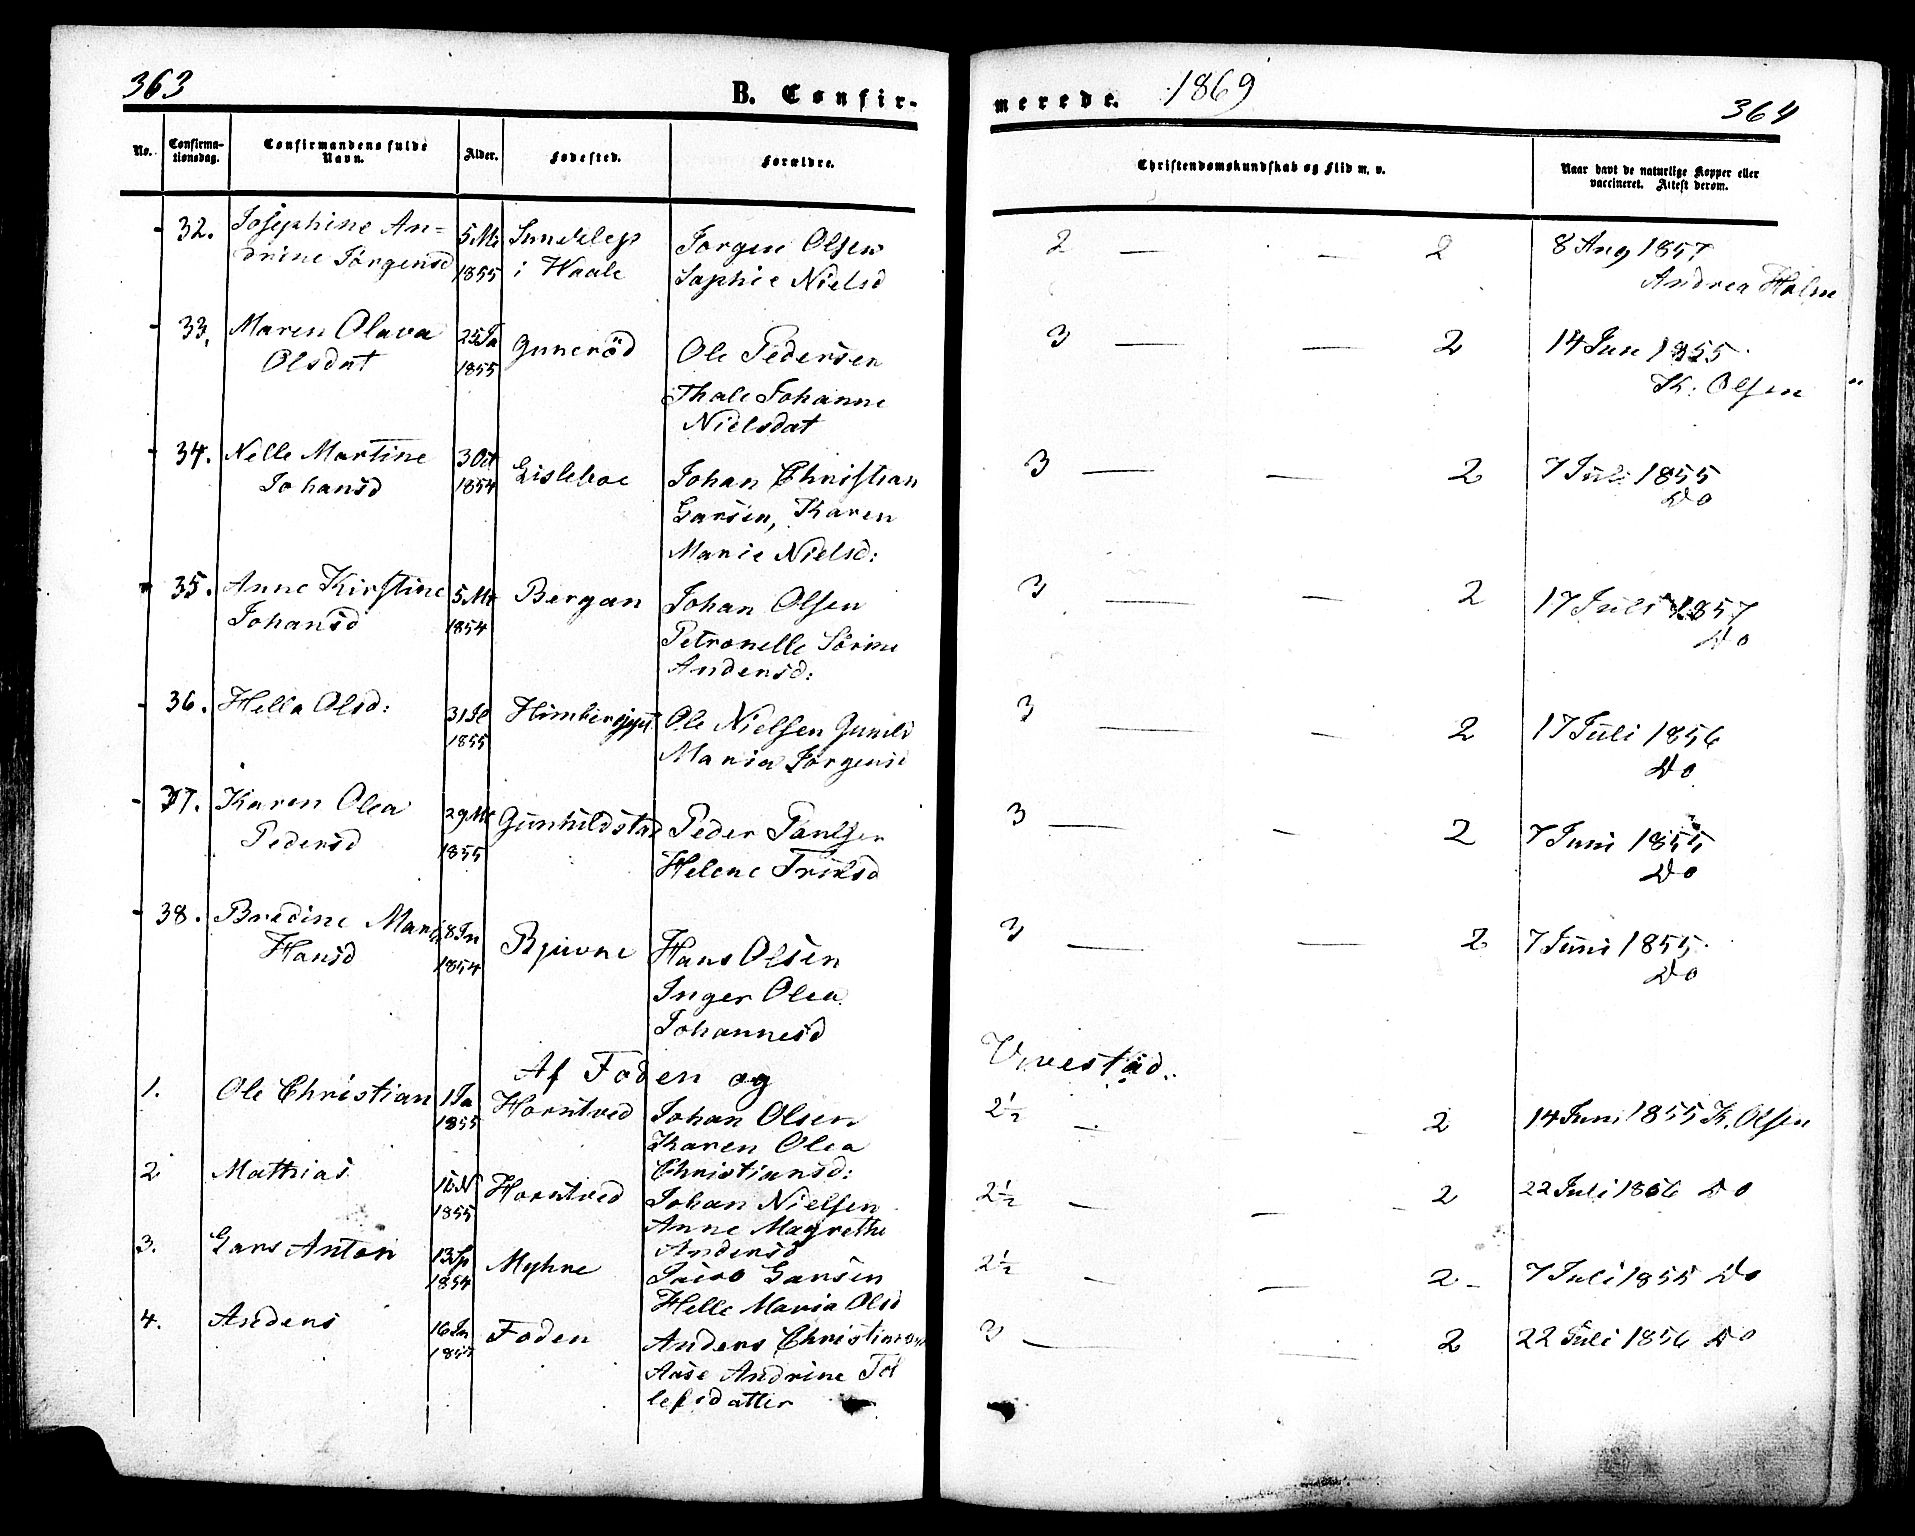 363
B. Confir-
merede.
1869
364
No.
Confirma-
tionsdag.
Confirmandens fulde
Navn.
Alder.
Fødested.
Forældre.
Christendomskundskab og Flid m. v.
Naar havt de naturlige Kopper eller
vaccineret. Attest derom.
32. Josephine An- 5 Mai Sundelep Jørgen Olsen 2 — — 2 8 Aug 1857
drine Jørgensd 1855 i Waale Sophie Nielsd Andrea Holm
33. Maren Olava 25 Ja Gunerød Ole Pedersen 3 — — 2 14 Jun 1855
Olsdat 1855 Thale Johanne K. Olsen
Nielsdat
34. Nelle Martine 3 Oct Gisleboe Johan Christian 3 — — 2 7 Juli 1855
Johansd 1854 Larsen, Karen Do
Marie Nielsd:
35. Anne Kirstine 5 Bergan Johan Olsen 3 — — 2 17 Juli 1857
Johansd 1854 Petronelle Sørine Do
Andersd:
36. Hella Olsd: 31 Ole Nielsen Gunild 3 — — 2 17 Juli 1856
1855 Maria Jørgensd Do
37. Karen Olea 29 Gunhildstad Peder Paulsen 3 — — 2 7 Juni 1855
Pedersd 1855 Helene Do
38. Bredine Mari 8 Hans Olsen 3 — — 2 7 Juni 1855
Hansd 1854 Inger Olea Do
Johannesd
Af Foden og Vivestad.
1. Ole Christian 1 Ja Horntved Johan Olsen 2½ — 2 14 Juni 1855 K. Olsen
1855 Karen Olea
Christiansd:
2 Mathias Horntved Johan Nielsen 2½ — — 2 22 Juli 1856 Do
1855 Anne Magrethe
Andersd
3. Lars Anton 13 Sp Myhre Larsen 2½ — — 2 - 7 Juli 1855 Do
1854 Helle Maria Olsd
4. Anders 16 Foden Anders Christiansen 3 — — 2 22 Juli 1856 Do
1855 Andrine Tol
lefsdatter